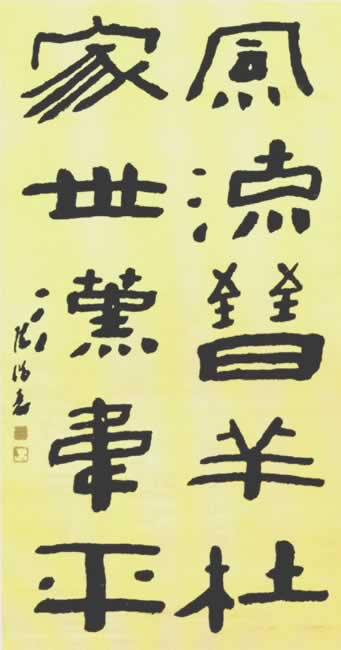 風流晉羊杜
家世漢韋平